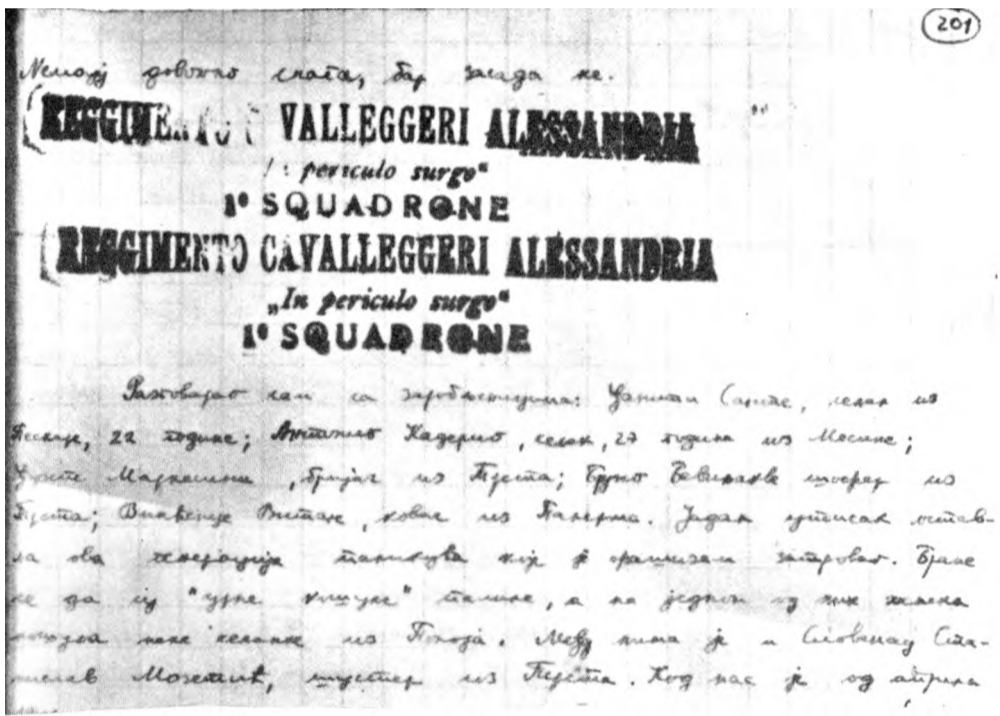 201
довољно снага, бар засада не.
REGGIMENTO VALLEGGERI ALESSANDRIA "
periculo surgo“
1º SQUADRONE
REGGIMENTO CAVALLEGGERI ALESSANDRIA
„In periculo surgo“
1º SQUADRONE
Разговарао сам са заробљеницима: Сапите, сељак из
22 године; Антонио Кадерио, сељак, 27 година из Месине;
бријач из Трста; Бруно шофер из
Трста; Витале, ковач из Палерма. Јадан утисак остав-
ља ова генерација коју је фашизам затровао. Бране
се да су "црне кошуље" палиле, а на једном од њих
кошуља неке сељанке из Међу њима је и Словенац Ста-
нислав Мозетић, шустер из Трста. Код нас је од априла